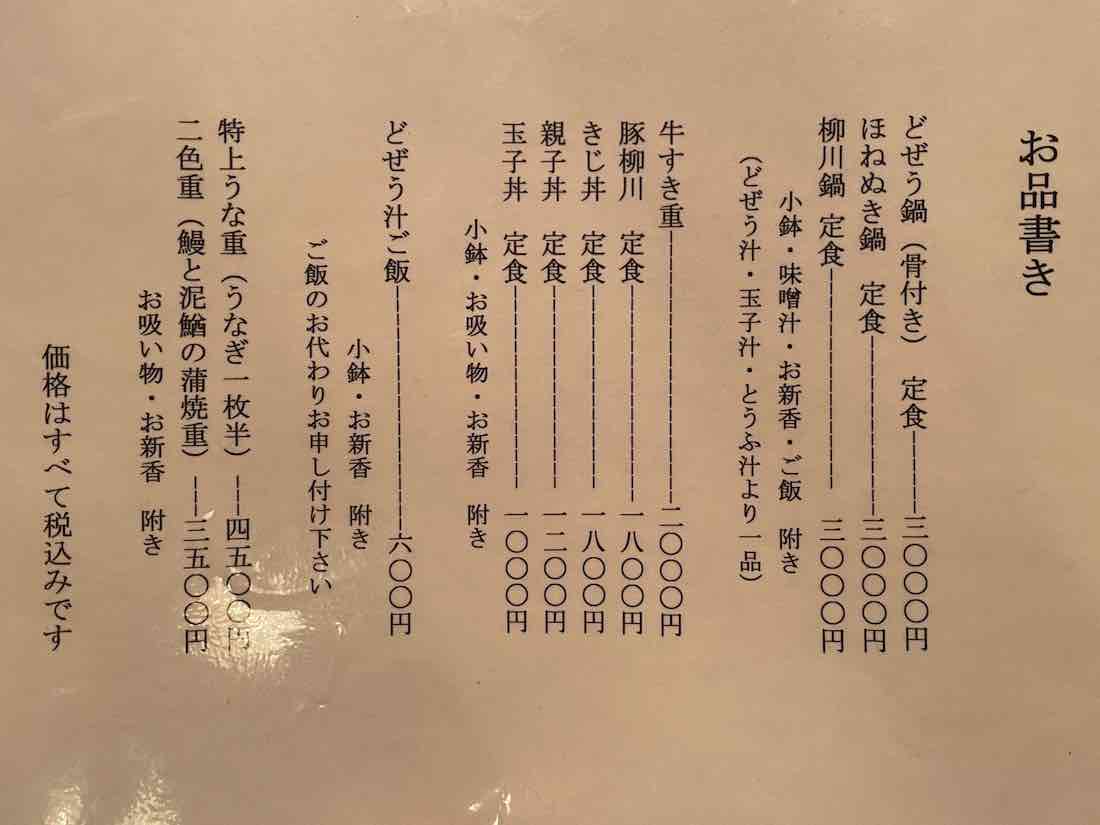 お品書き
どぜう鍋（骨付き）　定食―――三〇〇〇円
ほねぬき鍋　定食――――――三〇〇〇円
柳川鍋　定食――――――――三〇〇〇円
小鉢・味噌汁・お新香・ご飯　附き
（どぜう汁・玉子汁・とうふ汁より一品）
牛すき重――――――――――二〇〇〇円
豚柳川　定食――――――――一八〇〇円
きじ丼　定食――――――――一八〇〇円
親子丼　定食――――――――一二〇〇円
玉子丼　定食――――――――一〇〇〇円
小鉢・お吸い物・お新香　附き
どぜう汁ご飯―――――――――六〇〇円
小鉢・お新香　附き
ご飯のお代わりお申し付け下さい
特上うな重（うなぎ一枚半）―四五〇〇円
二色重（鰻と泥鰌の蒲焼重）―三五〇〇円
お吸い物・お新香　附き
価格はすべて税込みです